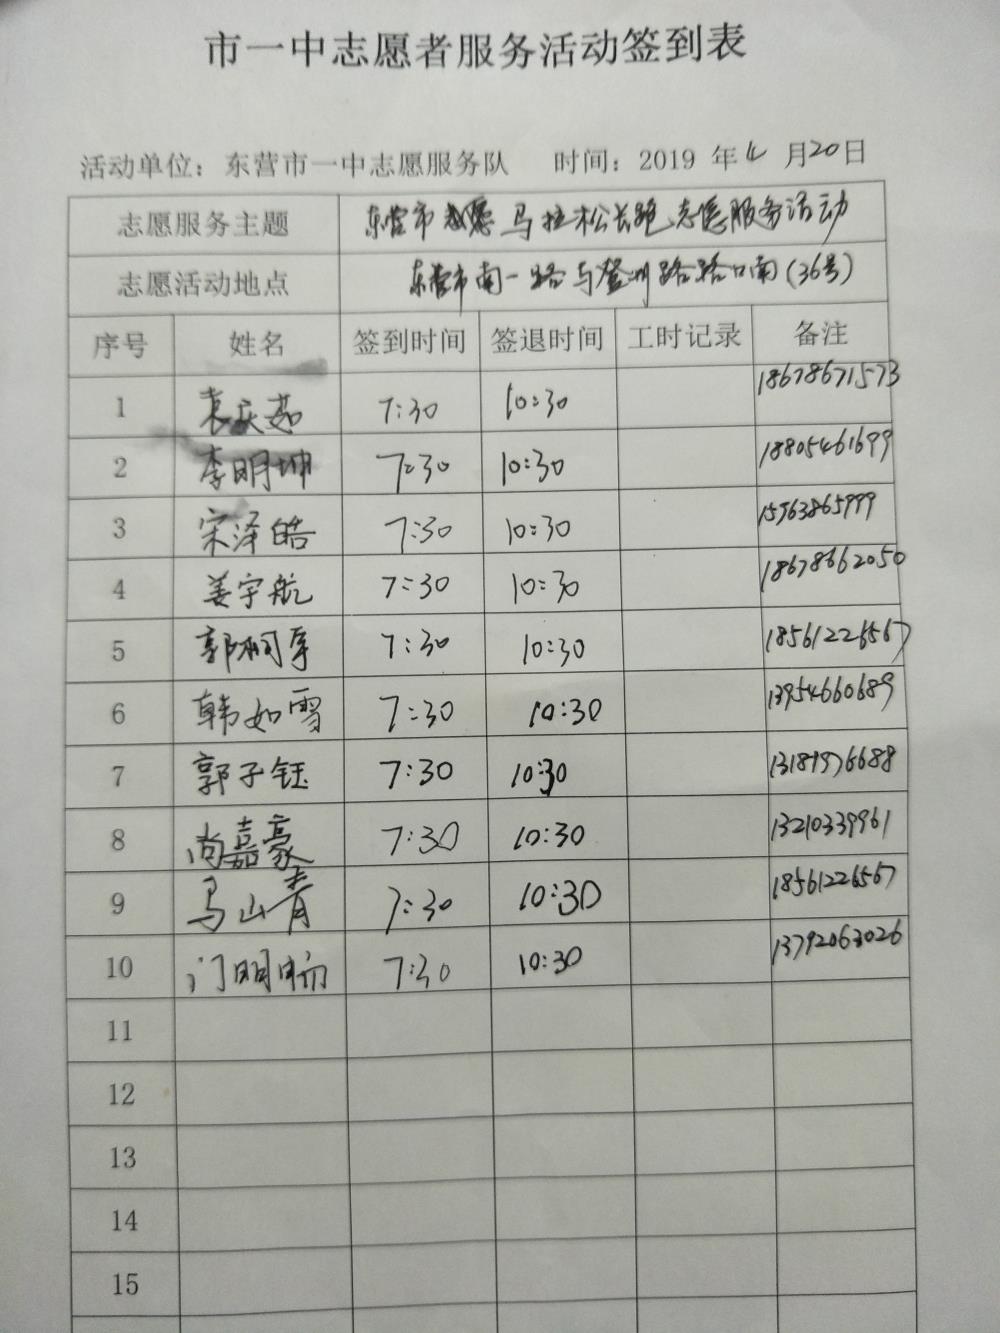 市一中志愿者服务活动签到表
活动单位：东营市一中志愿服务队 时间：2019 年 4 月 20 日
志愿服务主题 东营市 马拉松长跑志愿服务活动
志愿活动地点 东营市南一路与登州路路口南（36号）
序号 姓名 签到时间 签退时间 工时记录 备注
1 袁庆茹 7:30 10:30 18678671573
2 李明坤 7:30 10:30 18805461699
3 宋泽皓 7:30 10:30 15963865999
4 姜宇航 7:30 10:30 18678662050
5 郭桐序 7:30 10:30 18561226567
6 韩如雪 7:30 10:30 13954660689
7 郭子钰 7:30 10:30 13189976688
8 尚嘉豪 7:30 10:30 13210339961
9 马山青 7:30 10:30 18561226567
10 门明旸 7:30 10:30 13792063026
11
12
13
14
15